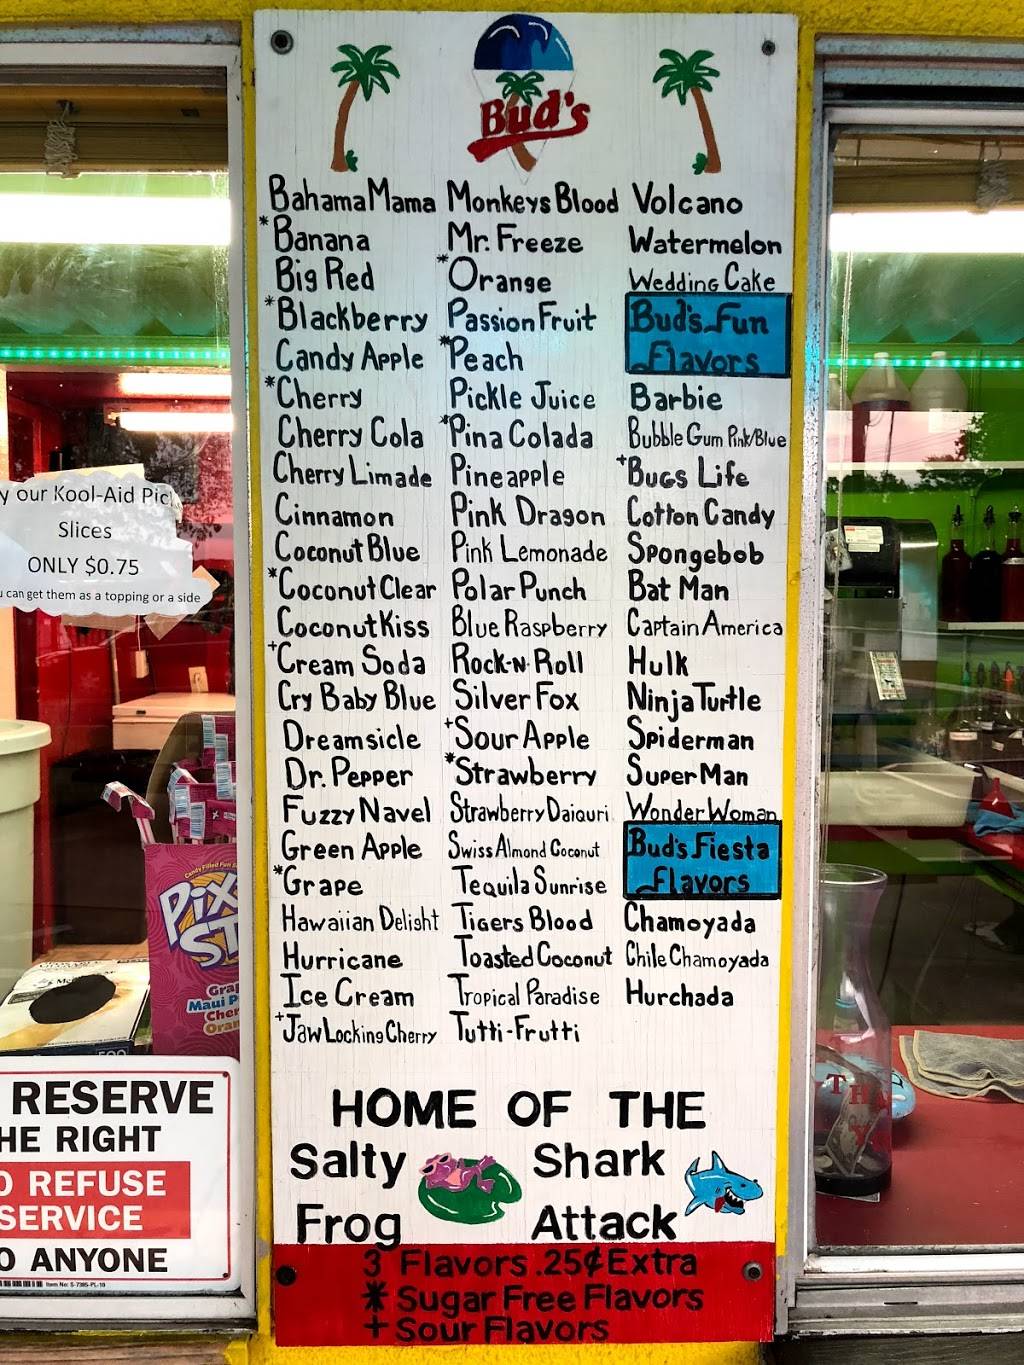 Bud's
Bahama Mama
*Banana
Big Red
*Blackberry
Candy Apple
*Cherry
Cherry Cola
Cherry Limade
Cinnamon
Coconut Blue
*Coconut Clear
Coconut Kiss
+Cream Soda
Cry Baby Blue
Dreamsicle
Dr. Pepper
Fuzzy Navel
Green Apple
*Grape
Hawaiian Delight
Hurricane
Ice Cream
+Jaw Locking Cherry
Monkeys Blood
Mr. Freeze
*Orange
Passion Fruit
*Peach
Pickle Juice
*Pina Colada
Pineapple
Pink Dragon
Pink Lemonade
Polar Punch
Blue Raspberry
Rock-N-Roll
Silver Fox
+Sour Apple
*Strawberry
Strawberry Daiquri
Swiss Almond Coconut
Tequila Sunrise
Tigers Blood
Toasted Coconut
Tropical Paradise
Tutti-Frutti
Volcano
Watermelon
Wedding Cake
Bud's Fun
Flavors
Barbie
Bubble Gum Pink/Blue
+Bugs Life
Cotton Candy
Spongebob
Bat Man
Captain America
Hulk
Ninja Turtle
Spiderman
Super Man
Wonder Woman
Bud's Fiesta
Flavors
Chamoyada
Chile Chamoyada
Hurchada
HOME OF THE
Salty
Frog
Shark
Attack
3 Flavors .25¢ Extra
* Sugar Free Flavors
+ Sour Flavors
y our Kool-Aid Pic
Slices
ONLY $0.75
u can get them as a topping or a side
Candy Filled Fun
Pix
St
Gra
Maui P
Cher
Oran
RESERVE
HE RIGHT
O REFUSE
SERVICE
O ANYONE
Item No: S-7385-PL-10